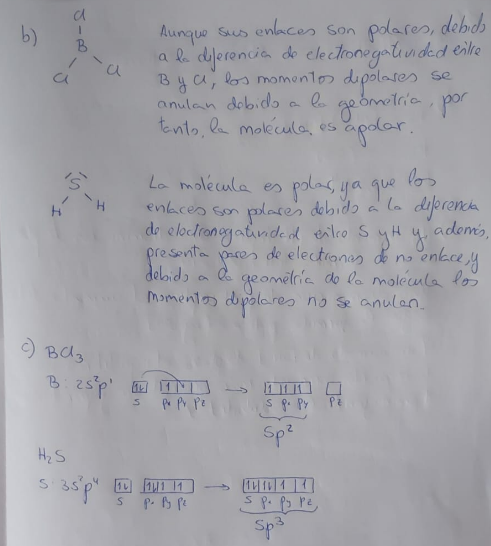 b)
Cl
B
Cl Cl
Aunque sus enlaces son polares, debido
a la diferencia de electronegatividad entre
B y Cl, los momentos dipolares se
anulan debido a la geometría, por
tanto, la molécula, es apolar.
S
H H
La molécula es polar, ya que los
enlaces son polares debido a la diferencia
de electronegatividad entre S y H y, además,
presenta pares de electrones de no enlace, y
debido a la geometría de la molécula los
momentos dipolares no se anulan.
c) BCl₃
B: 2s²p¹ 1↓ 1 → 1 1 1
s px py pz s px py pz
sp²
H₂S
S: 3s²p⁴ 1↓ 1↓ 1 1 → 1↓ 1↓ 1 1
s px py pz s px py pz
sp³